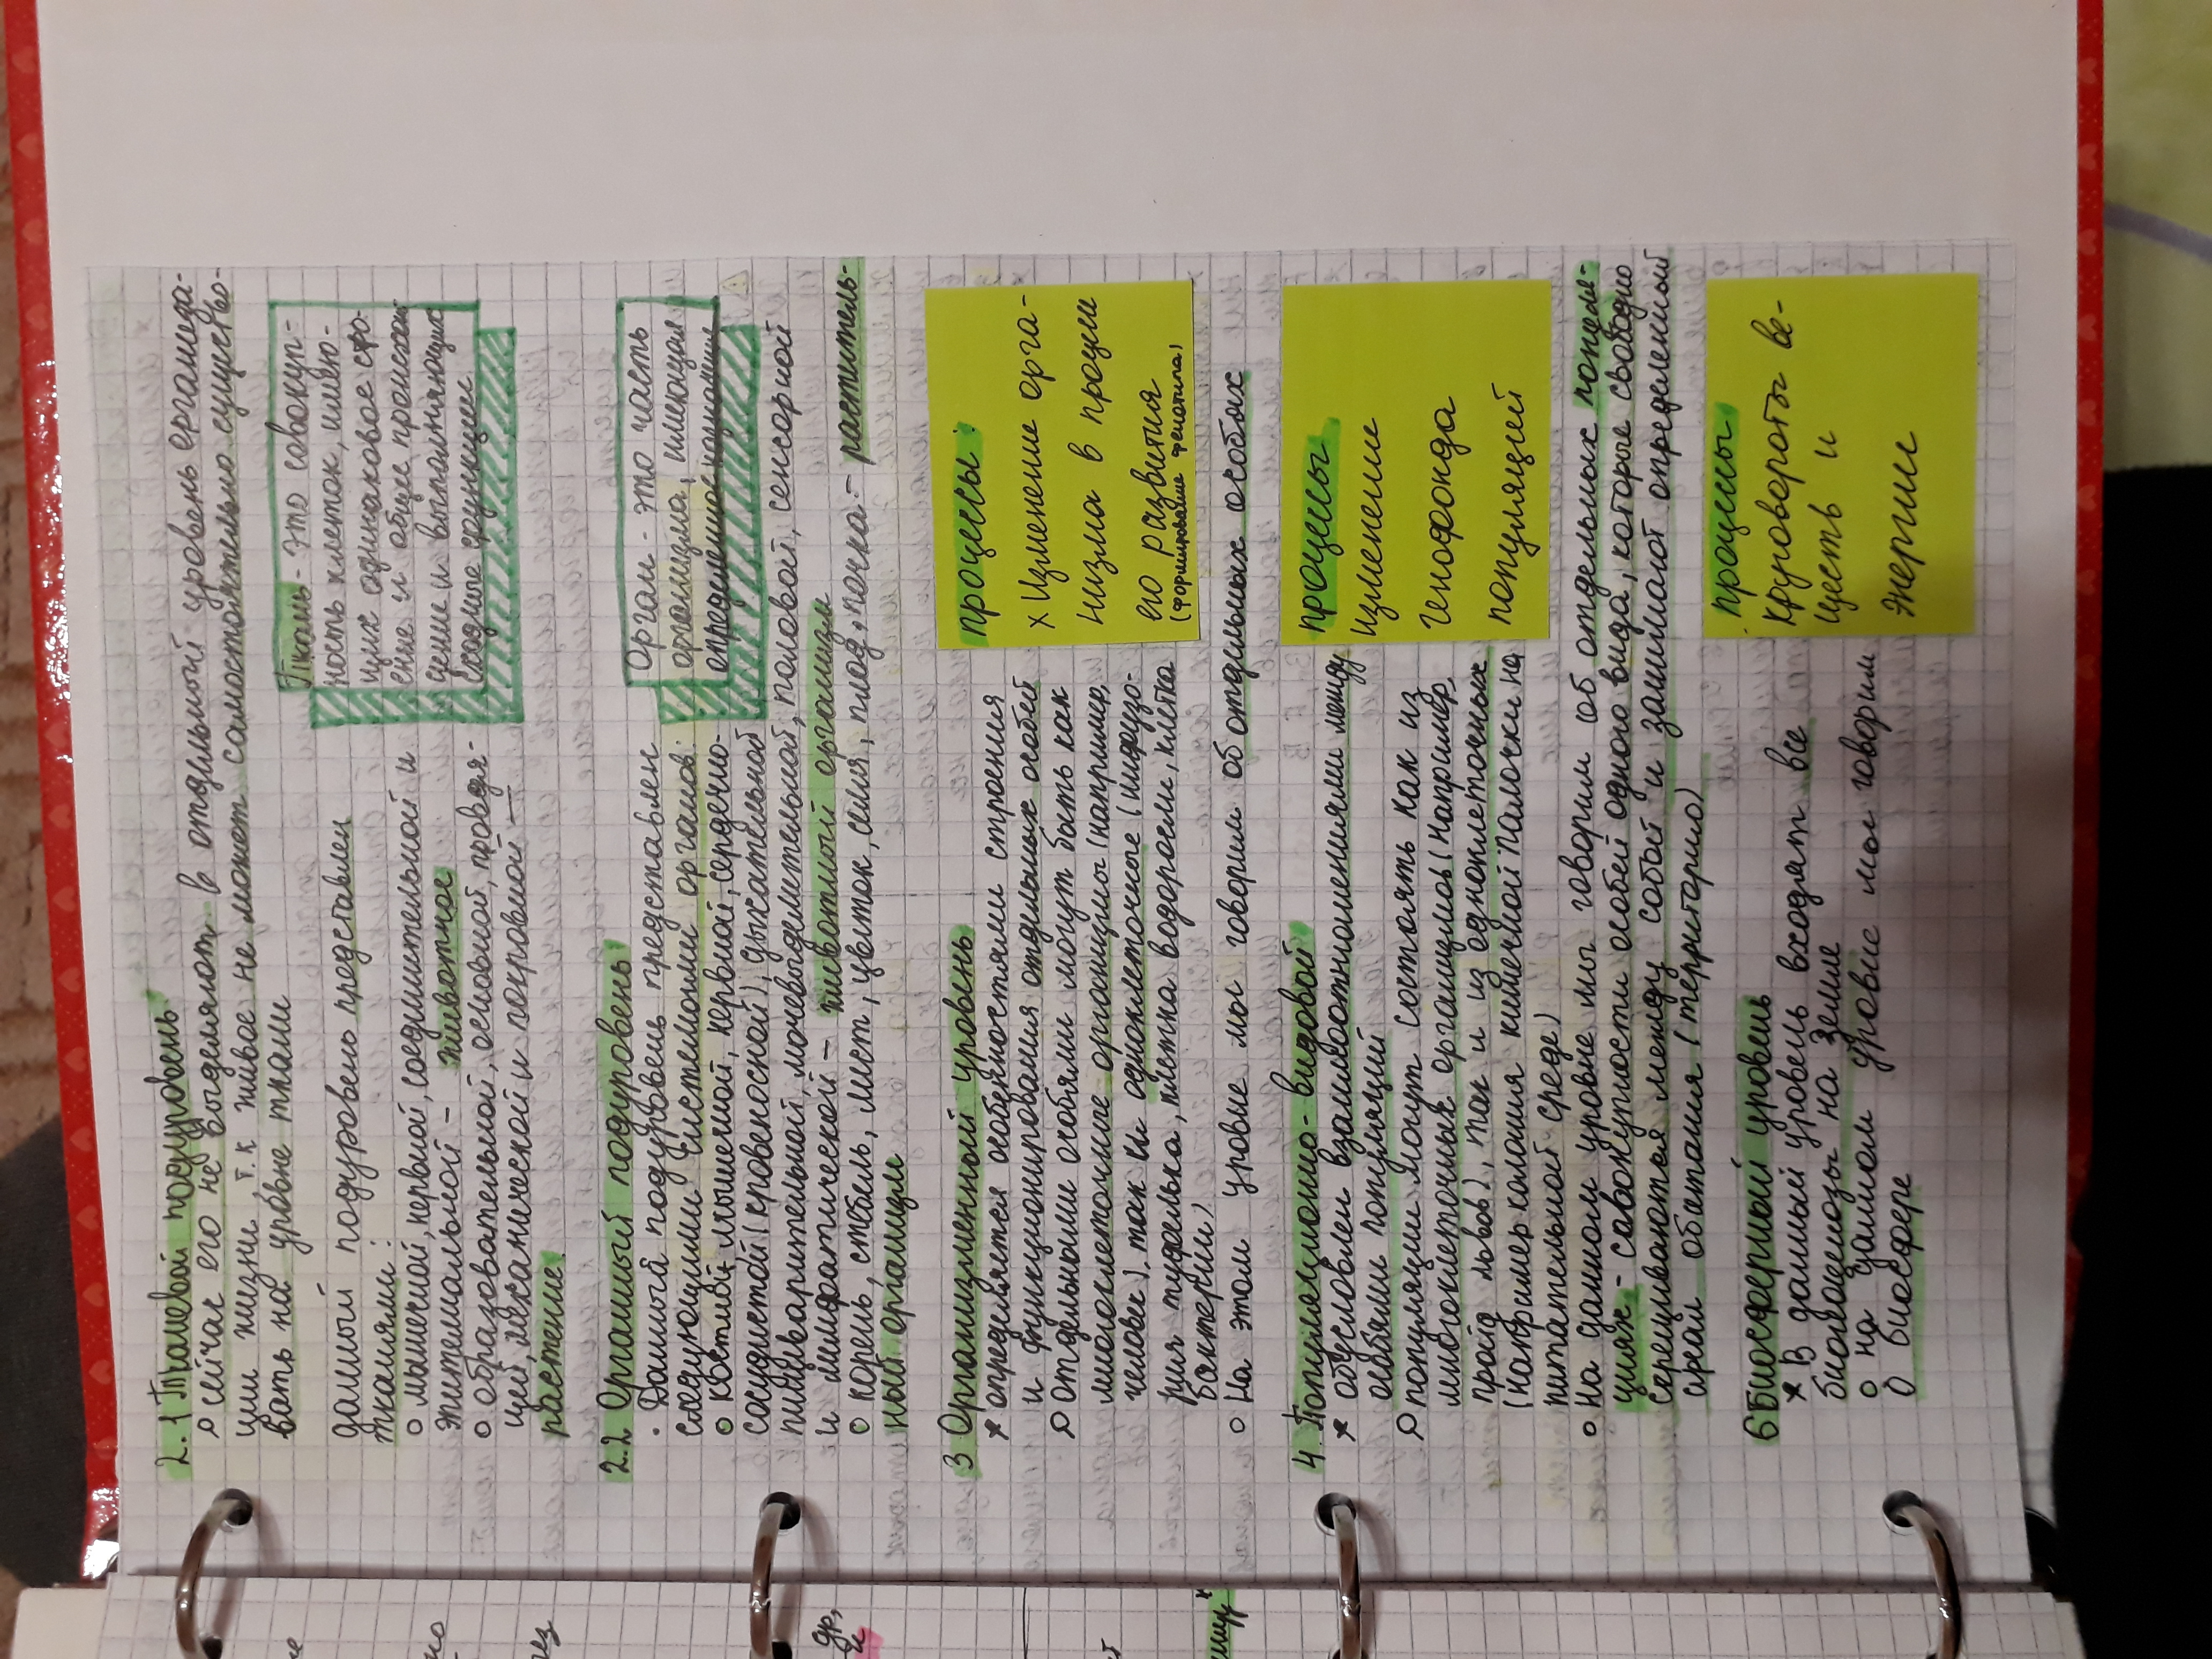 2.1 Тканевой подуровень
сейчас его не выделяют в отдельный уровень организа-
ции жизни, т.к живое не может самостоятельно существо-
вать на уровне ткани
Ткань - это совокуп-
ность клеток, имею-
щих одинаковое стро-
ение и общее происхож-
дение и выполняющих
сходные функции
данный подуровень представлен
тканями:
мышечной, нервной, соединительной и
эпителиальной - животное
образовательной, основной, проводя-
щей, механической и покровной -
растение
2.2 Органный подуровень
Данный подуровень представлен
следующими системами органов:
костной, мышечной, нервной, сердечно-
сосудистой (кровеносной), дыхательной
пищеварительной, мочевыделительной, половой, сенсорной
и лимфатической - животный организм
корень, стебель, лист, цветок, семя, плод, почка - растительный
ный организм
Орган - это часть
организма, имеющая
определенное
3 Организменный уровень
определяется особенностями строения
и функционирования отдельных особей
Отдельными особями могут быть как
многоклеточные организмы (например,
человек), так и одноклеточные (инфузо-
рия туфелька, клетка водоросли, клетка
бактерии)
На этом уровне мы говорим об отдельных особях
процессы:
x Изменение орга-
низма в процессе
его развития
(формирование фенотипа)
4. Популяционно-видовой
обусловлен взаимоотношениями между
особями популяций
популяции могут состоять как из
многоклеточных организмов (например
прайд львов), так и из одноклеточных
(например колония кишечной палочки на
питательной среде)
На данном уровне мы говорим об отдельных популя-
циях - совокупности особей одного вида, которые свободно
скрещиваются между собой и занимают определенный
ареал обитания (территорию)
процессы
изменение
генофонда
популяций
6 Биосферный уровень
В данный уровень входят все
биогеоценозы на Земле
на данном уровне мы говорим
О биосфере
процессы
Круговороты ве-
ществ и
энергии